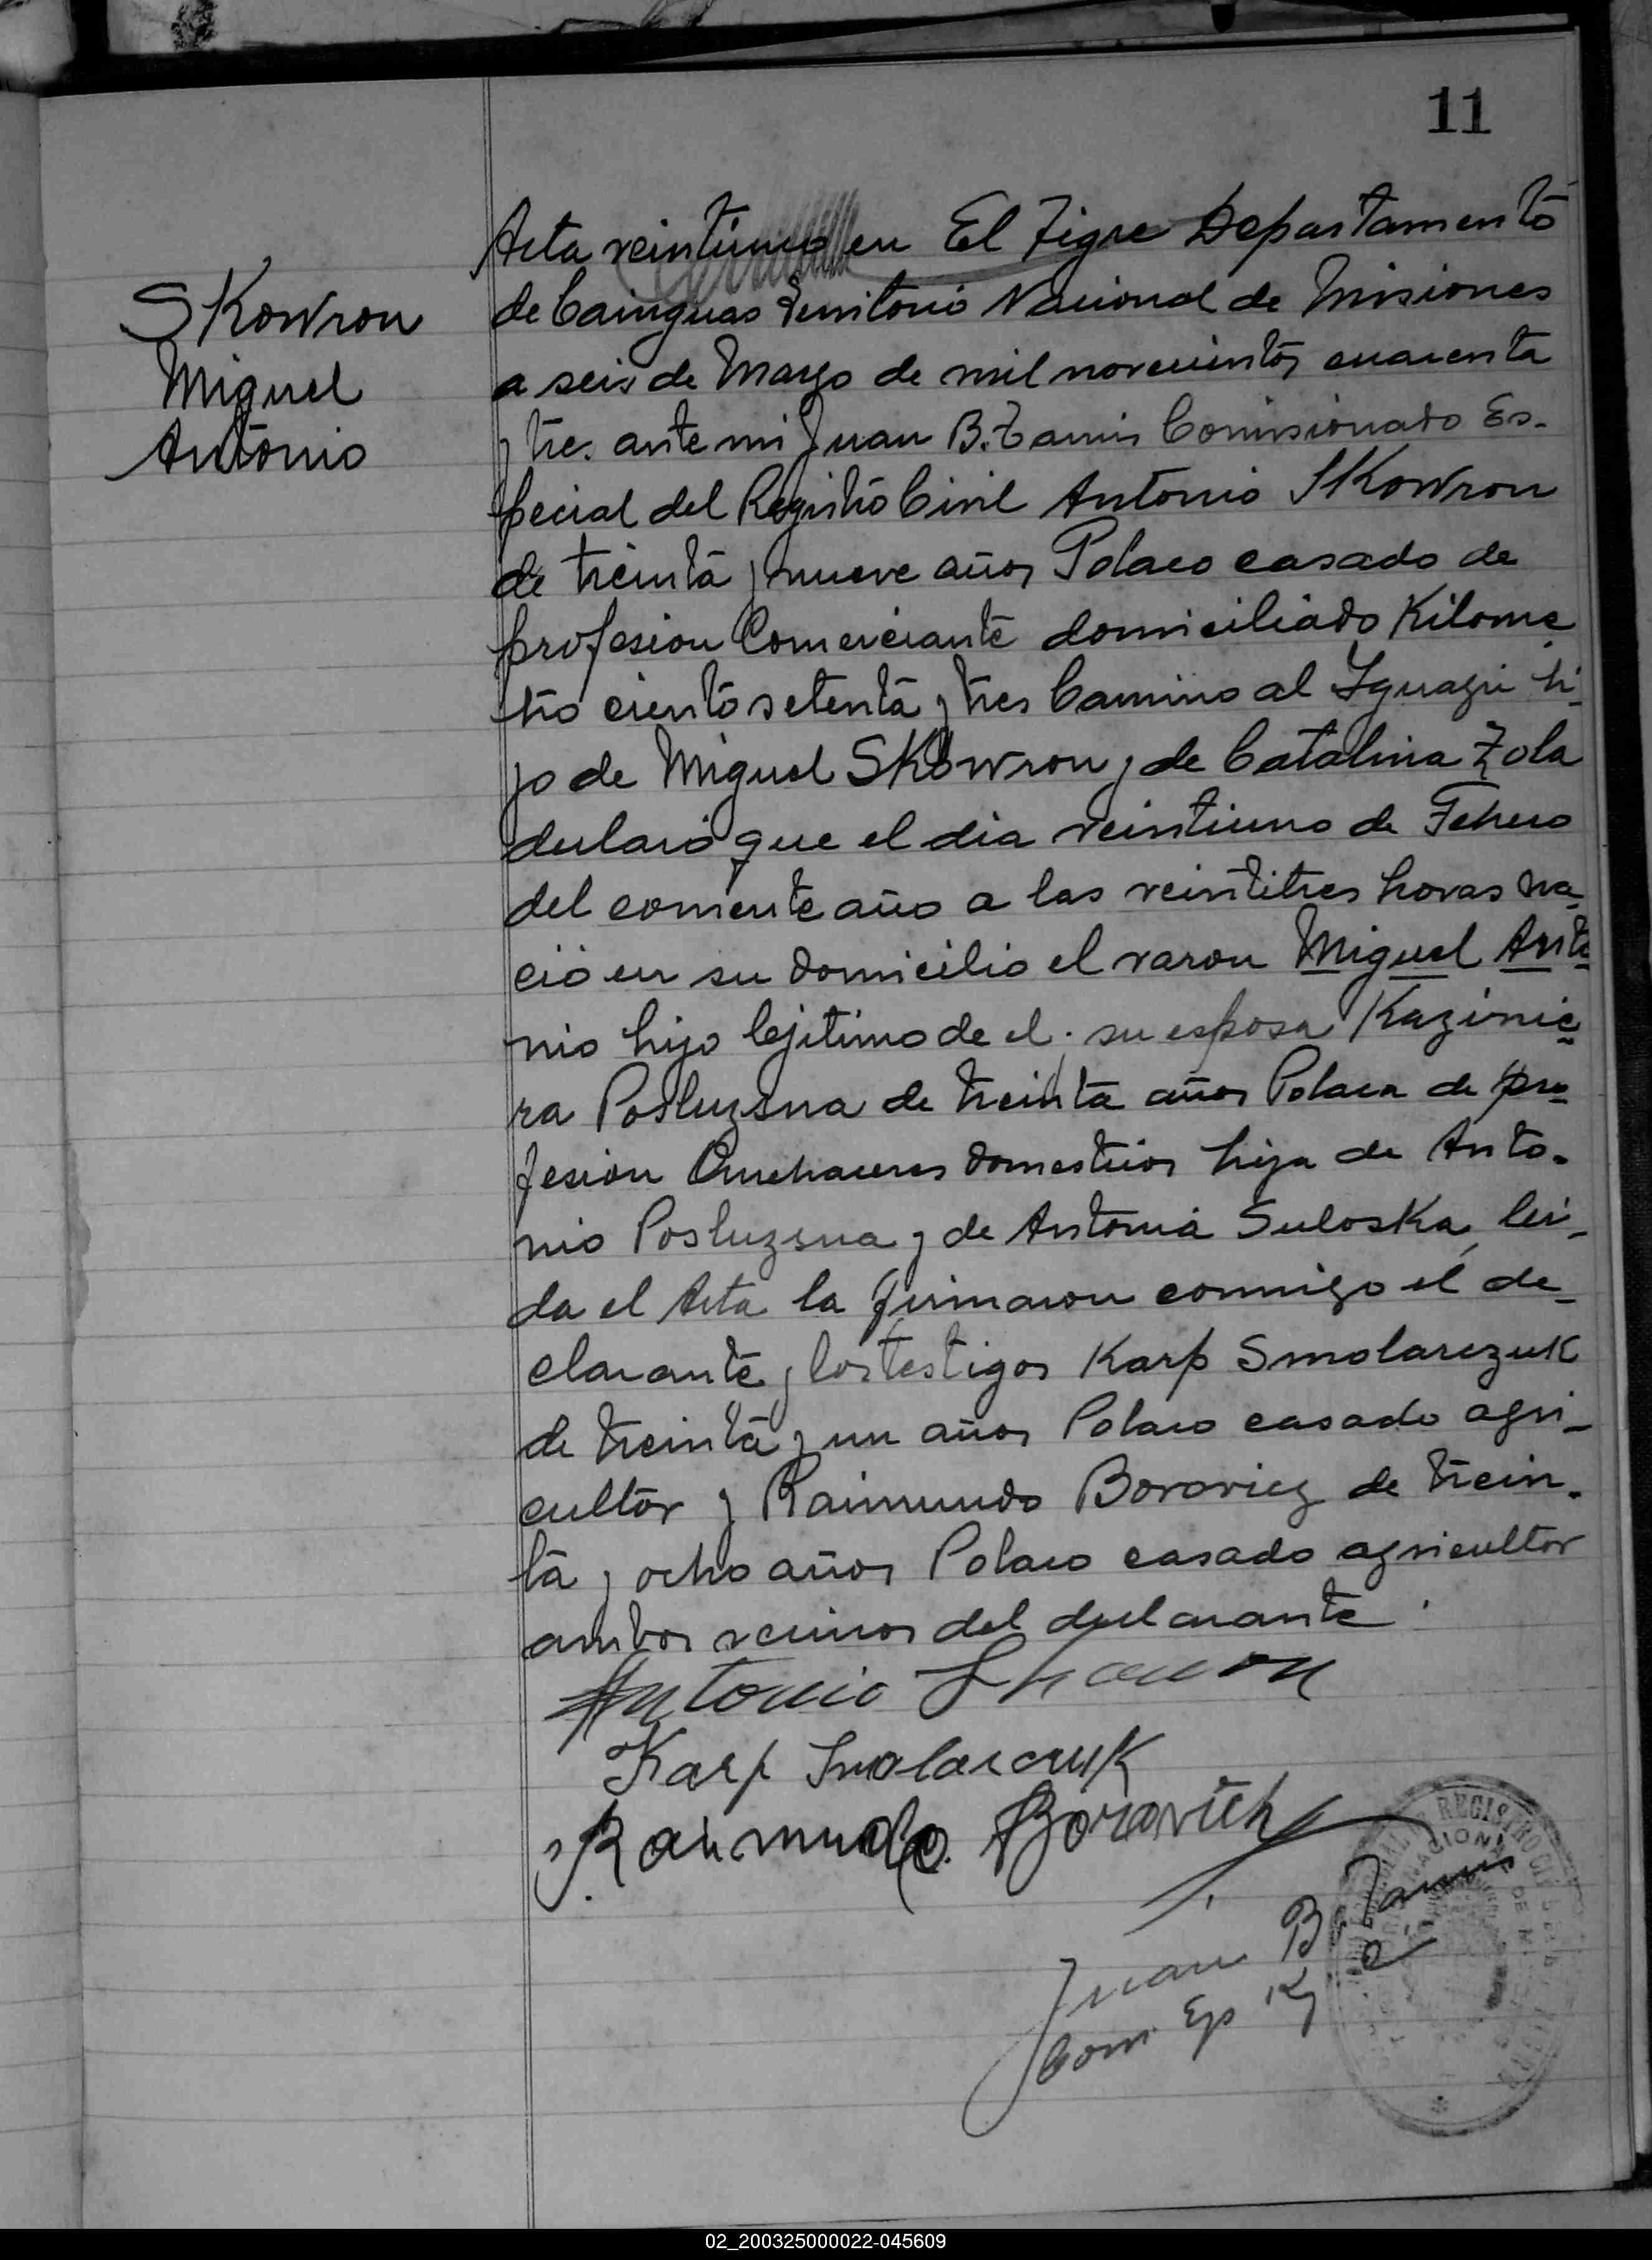 11
SKowron
Miguel
Antonio
Acta veintiuno en El Tigre Departamento
de Cainguas Territorio Nacional de Misiones
a seis de Marzo de mil novecientos cuarenta
y tres ante mi Juan B. Comisionado Es-
pecial del Registro Civil Antonio SKowron
de treinta y nueve años Polaco casado de
profesion Comerciante domiciliado Kilome
tro ciento setenta y tres Camino al Iguazu hi-
jo de Miguel SKowron y de Catalina Zola
declaró que el dia veintiuno de Febrero
del corriente año a las veintitres horas na-
ció en su domicilio el varon Miguel Anto-
nio hijo lejitimo de el y su esposa Kazimie-
ra Posluzsna de treinta años Polaca de pro-
fesion Quehaceres domesticos hija de Anto-
nio Posluzsna y de Antonia SulosKa, lei-
da el Acta la firmaron conmigo el de-
clarante y los testigos Karp SmolarczuK
de treinta y un años Polaco casado agri-
cultor y Raimundo Borovicz de trein-
ta y ocho años Polaco casado agricultor
ambos vecinos del declarante.
Antonio
Karp
Raimundo Borovich
Juan B.
Com Esp
REGISTRO CIVIL
02_200325000022-045609